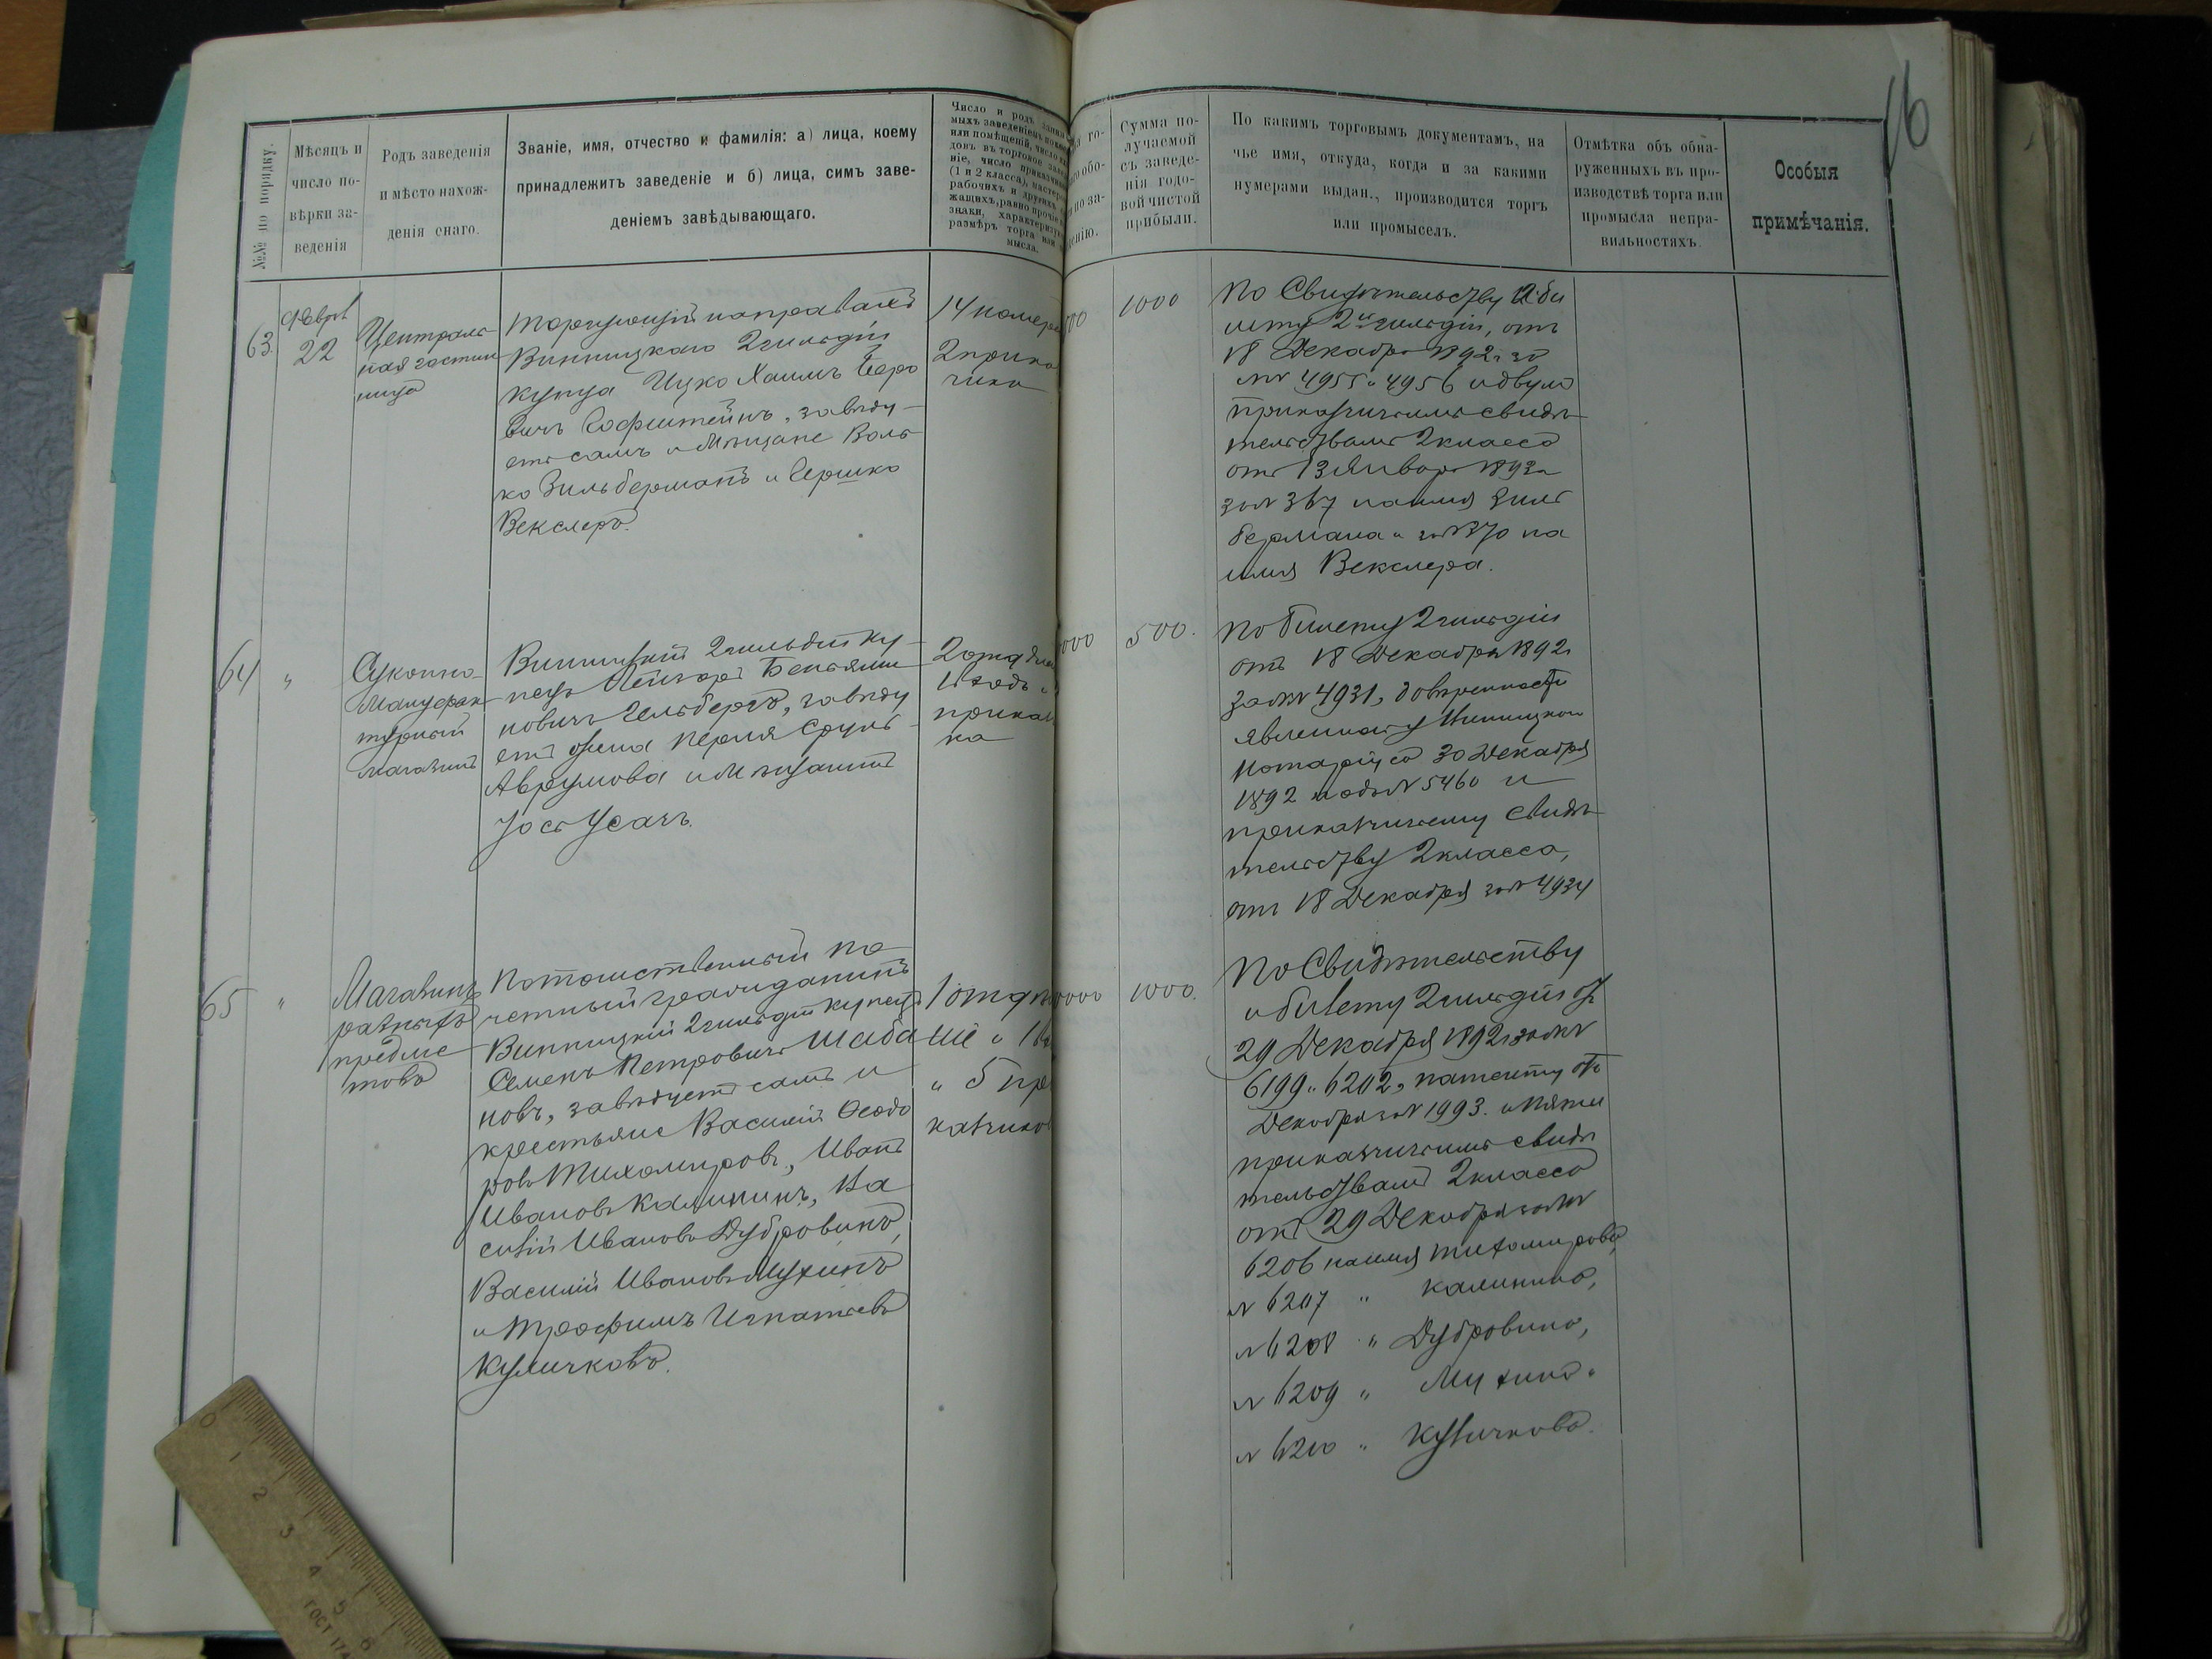 16
№№ по порядку.
Мѣсяцъ и
число по-
вѣрки за-
веденія
Родъ заведенія
и мѣсто нахож-
денія онаго.
Званіе, имя, отчество и фамилія: а) лица, коему
принадлежитъ заведеніе и б) лица, симъ заве-
деніемъ завѣдывающаго.
Число и родъ
мыхъ заведеніемъ
или помѣщеній, число
довъ въ торговое
ніе, число
(1 и 2 класса),
рабочихъ и другихъ
жащихъ, равно прочіе
знаки,
размѣръ торга или
мысла.
Сумма по-
лучаемой
съ заведе-
нія годо-
вой чистой
прибыли.
По какимъ торговымъ документамъ, на
чье имя, откуда, когда и за какими
нумерами выдан., производится торгъ
или промыселъ.
Отмѣтка объ обна-
руженныхъ въ про-
изводствѣ торга или
промысла непра-
вильностяхъ.
Особыя
примѣчанія.
63.
22
Централь
ная гостин
ница
Торгующій на правахъ
Винницкаго 2 гильдіи
купца Ицко Хаимъ Беро
вичъ Гофштейнъ, завѣду-
етъ самъ и Мѣщане Воль
ко Зильберманъ и Гершко
Векслеръ.
14 номеро
2 прика
чика
1000
По Свидѣтельству и би
лету 2й гильдіи, отъ
18 Декабря 1892 г за
№№ 4955 и 4956 и двумъ
приказчичьимъ свидѣ
тельствамъ 2 класса
отъ 13 Января 1893 г
за № 367 на имя Зиль
бермана и за № 370 на
имя Векслера.
64
"
Суконно-
Мануфак
турный
магазинъ
Винницкій 2 гильдіи ку-
пецъ Беньями
новичъ Гельбергъ, завѣду
етъ жена Перля Сруль-
Аврумова и Мѣщанинъ
Іось Усачъ.
2 отдѣле
1 входъ и
прикащ
ка
000
500.
По билету 2 гильдіи
отъ 18 Декабря 1892 г
за № 4931, довѣренности
явленная у Винницкаго
Нотаріуса 30 Декабря
1892 года № 5460 и
приказчичьему свидѣ
тельству 2 класса,
отъ 18 Декабря за № 4934
65
"
Магазинъ
разныхъ
предме
товъ
Потомственный по
четный гражданинъ
Винницкій 2 гильдіи купецъ
Семенъ Петровичъ Шаба
новъ, завѣдуетъ самъ и
крестьяне Василій Ѳеодо
ровъ Тихомировъ, Иванъ
Ивановъ Калининъ, Ва
силій Ивановъ Дубровинъ,
Василій Ивановъ Мухинъ
и Трофимъ Игнатьевъ
Куличковъ.
1 отдѣ
" 5 при
казчиковъ
0000
1000.
По Свидѣтельству
и билету 2 гильдіи отъ
29 Декабря 1892 г за №№
6199 и 6202, патенту отъ
Декабря за № 1993. и пяти
приказчичьимъ свидѣ
тельствамъ 2 класса
отъ 29 Декабря за №№
6206 на имя Тихомирова,
№ 6207 " Калинина,
№ 6208 " Дубровина,
№ 6209 " Мухина "
№ 6210 " Куличкова.
0 1 2 3 4 5 6
ГОСТ 174